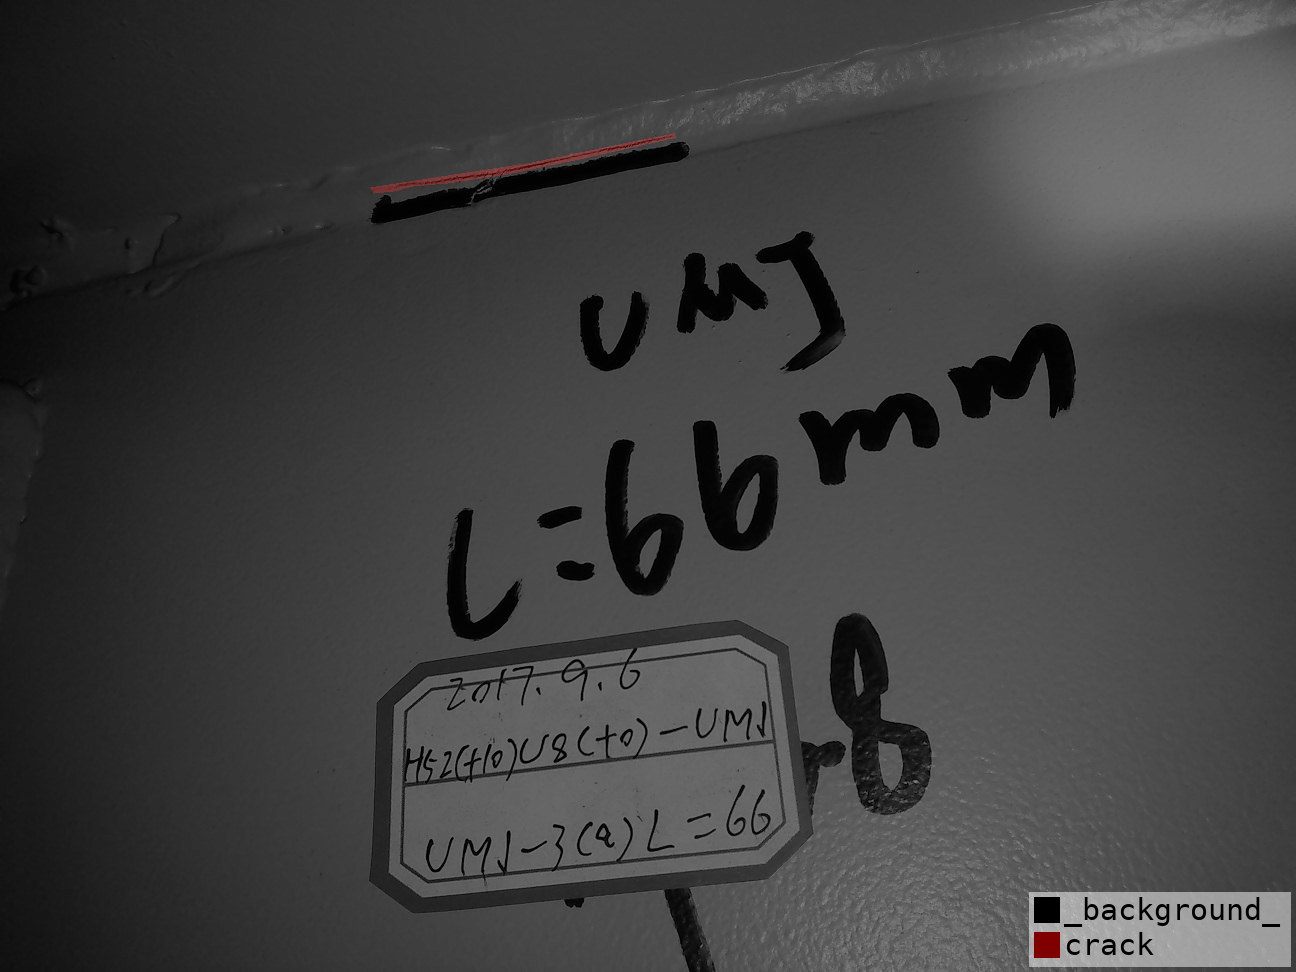 UMJ
L=66mm
8
2017.9.6
HS2(+10)U8(+0)-UMJ
UMJ-3(a)L=66
_background_
crack